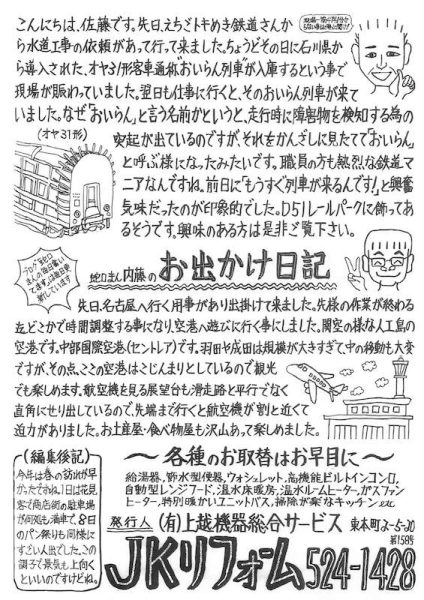 こんにちは、佐藤です。先日、えちごトキめき鉄道さんか
ら水道工事の依頼があって行って来ました。ちょうどその日に石川県か
ら導入された、オヤ31形客車通称"おいらん列車"が入庫するという事で
現場が賑わっていました。翌日も仕事に行くと、そのおいらん列車が来て
いました。なぜ「おいらん」と言う名前かというと、走行時に障害物を検知する為の
(オヤ31形)
突起が出ているのですが、それをかんざしに見立てて「おいらん」
と呼ぶ様になったみたいです。職員の方も熱烈な鉄道マ
ニアなんですね。前日に「もうすぐ列車が来るんです!」と興奮
気味だったのが印象的でした。D51レールパークに飾ってあ
るそうです。興味のある方は是非ご覧下さい。
ブログ"蛇口
まんの毎日書い
て候"は毎日更
新しています
蛇口まん内藤のお出かけ日記
先日、名古屋へ行く用事があり出掛けて来ました。先様の作業が終わる
迄どこかで時間調整する事になり、空港へ遊びに行く事にしました。関空の様な人工島の
空港です。中部国際空港(セントレア)です。羽田や成田は規模が大きすぎて、中の移動も大変
ですが、その点、ここの空港はこじんまりとしているので観光
でも楽しめます。航空機を見る展望台も滑走路と平行でなく
直角にせり出しているので、先端まで行くと航空機が割と近くて
迫力がありました。お土産屋・食べ物屋も沢山あって楽しめました。
(編集後記)
今年は春の訪れが早
かったですね。1日は花見
客で商店街の駐車場
が何処も満車で、8日
のパン祭りも同様に
すごい人出でした。この
調子で景気も上向く
といいのですけどね。
〜各種のお取替はお早目に〜
給湯器、節水型便器、ウォシュレット、高機能ビルトインコンロ、
自動型レンジフード、温水床暖房、温水ルームヒーター、ガスファン
ヒーター、特別暖かいユニットバス、掃除が楽なキッチン etc
発行人 (有)上越機器総合サービス 東本町2-5-20
第158号
JKリフォーム 524-1428